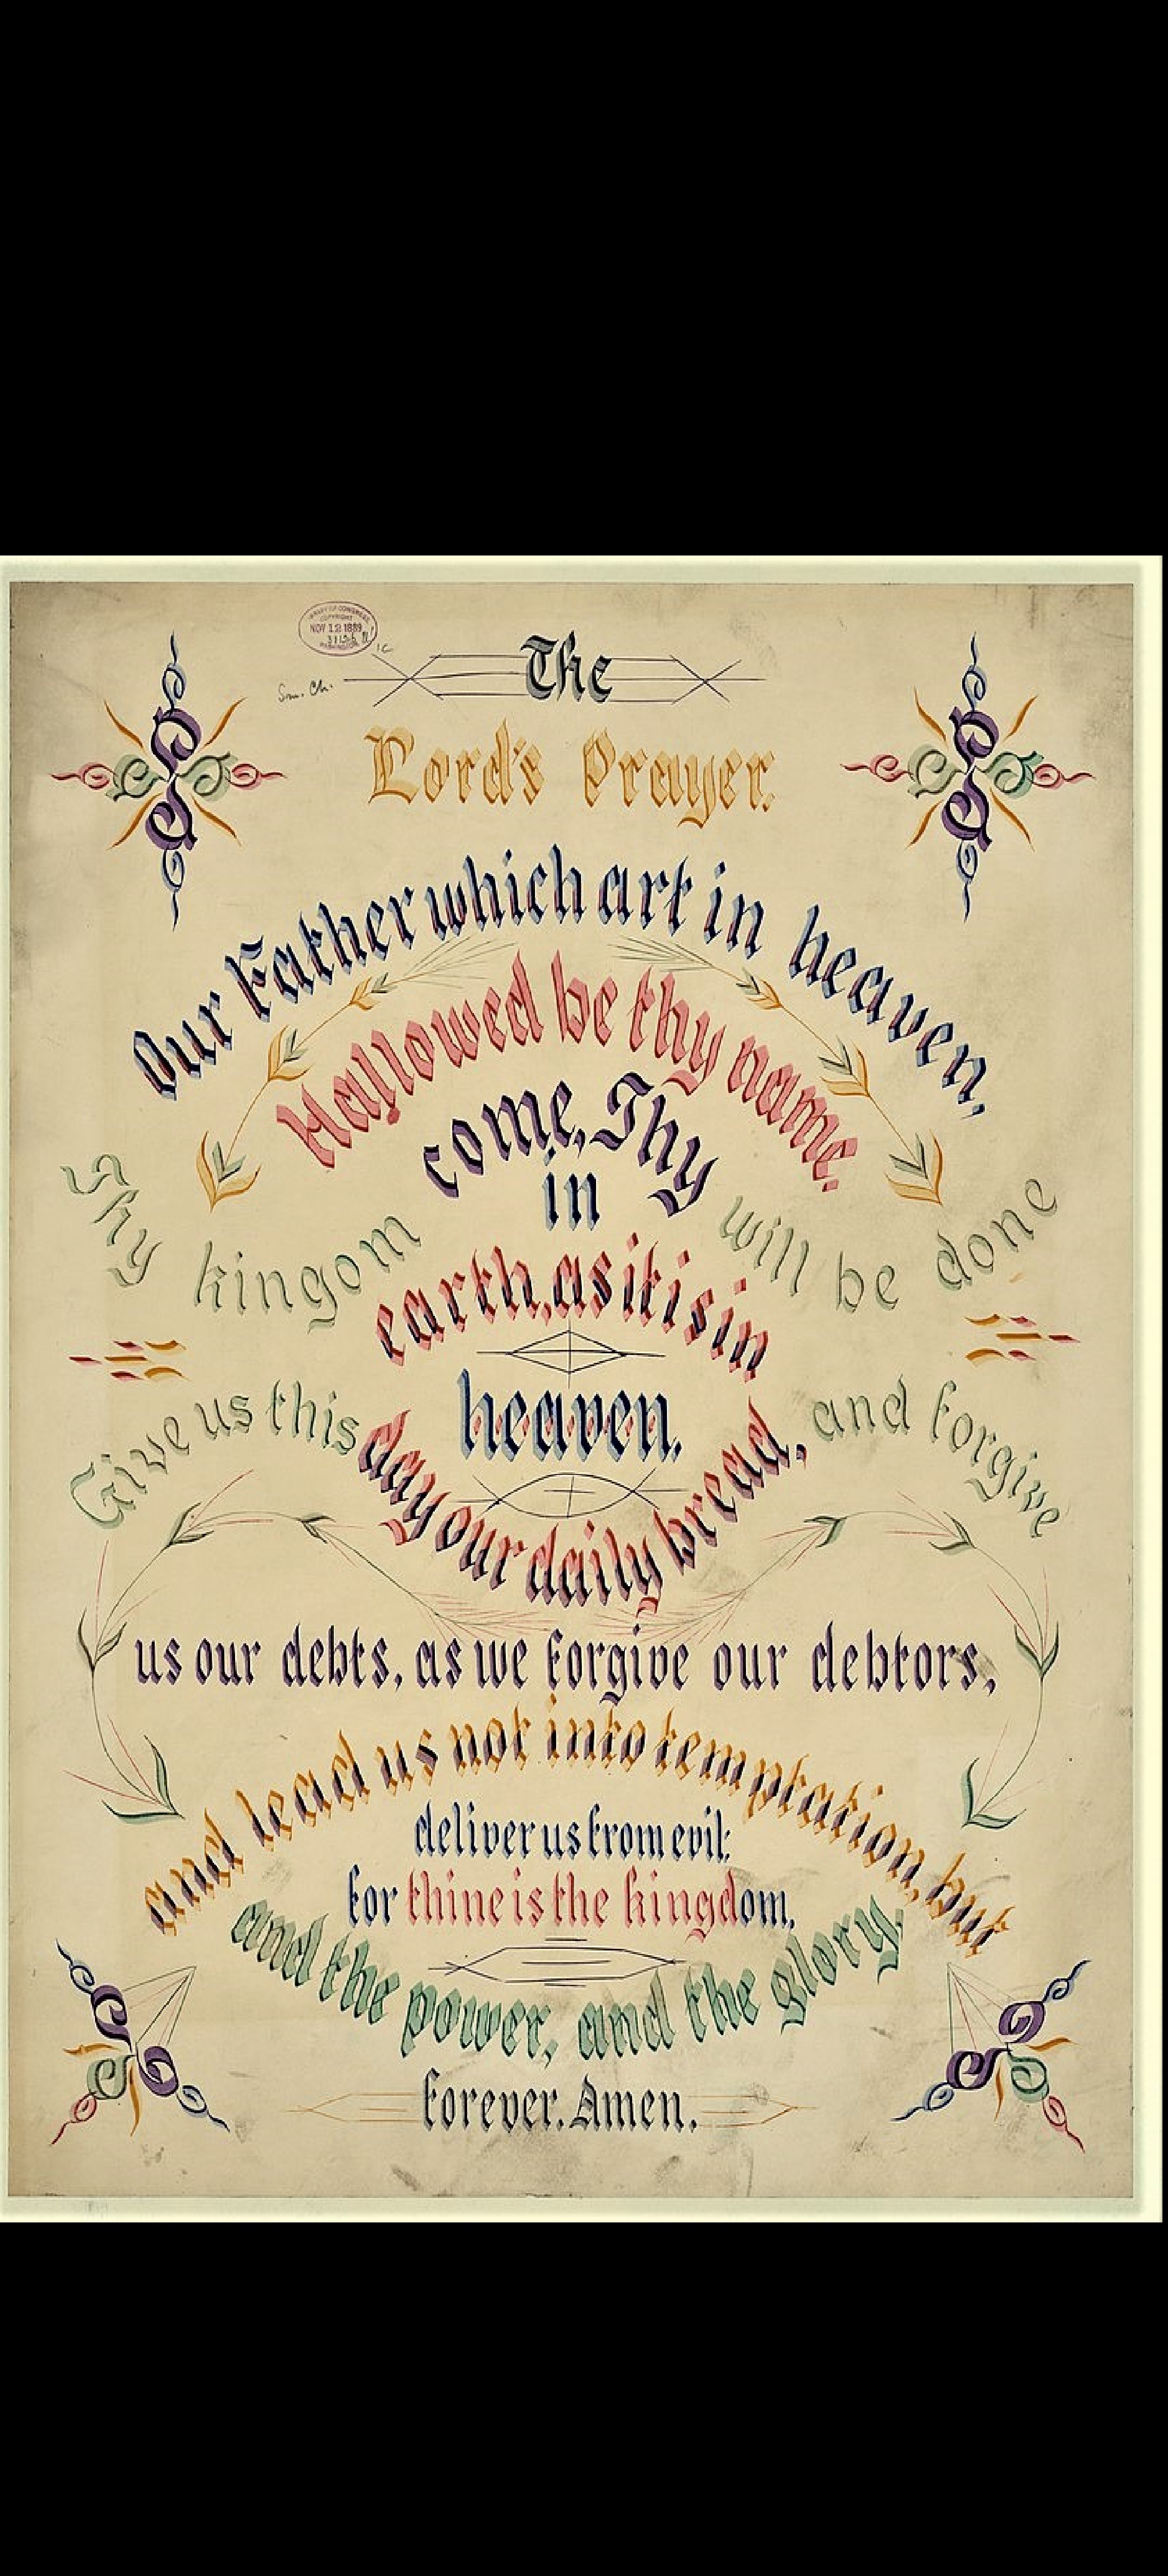 LIBRARY OF CONGRESS
COPYRIGHT
NOV 12 1889
WASHINGTON
The
Lord's Prayer.
Our Father which art in heaven,
Hallowed be thy name.
Thy kingom come, Thy will be done
in
earth, as it is in
heaven.
Give us this day our daily bread, and forgive
us our debts, as we forgive our debtors,
and lead us not into temptation, but
deliver us from evil:
for thine is the kingdom,
and the power, and the glory,
forever. Amen.